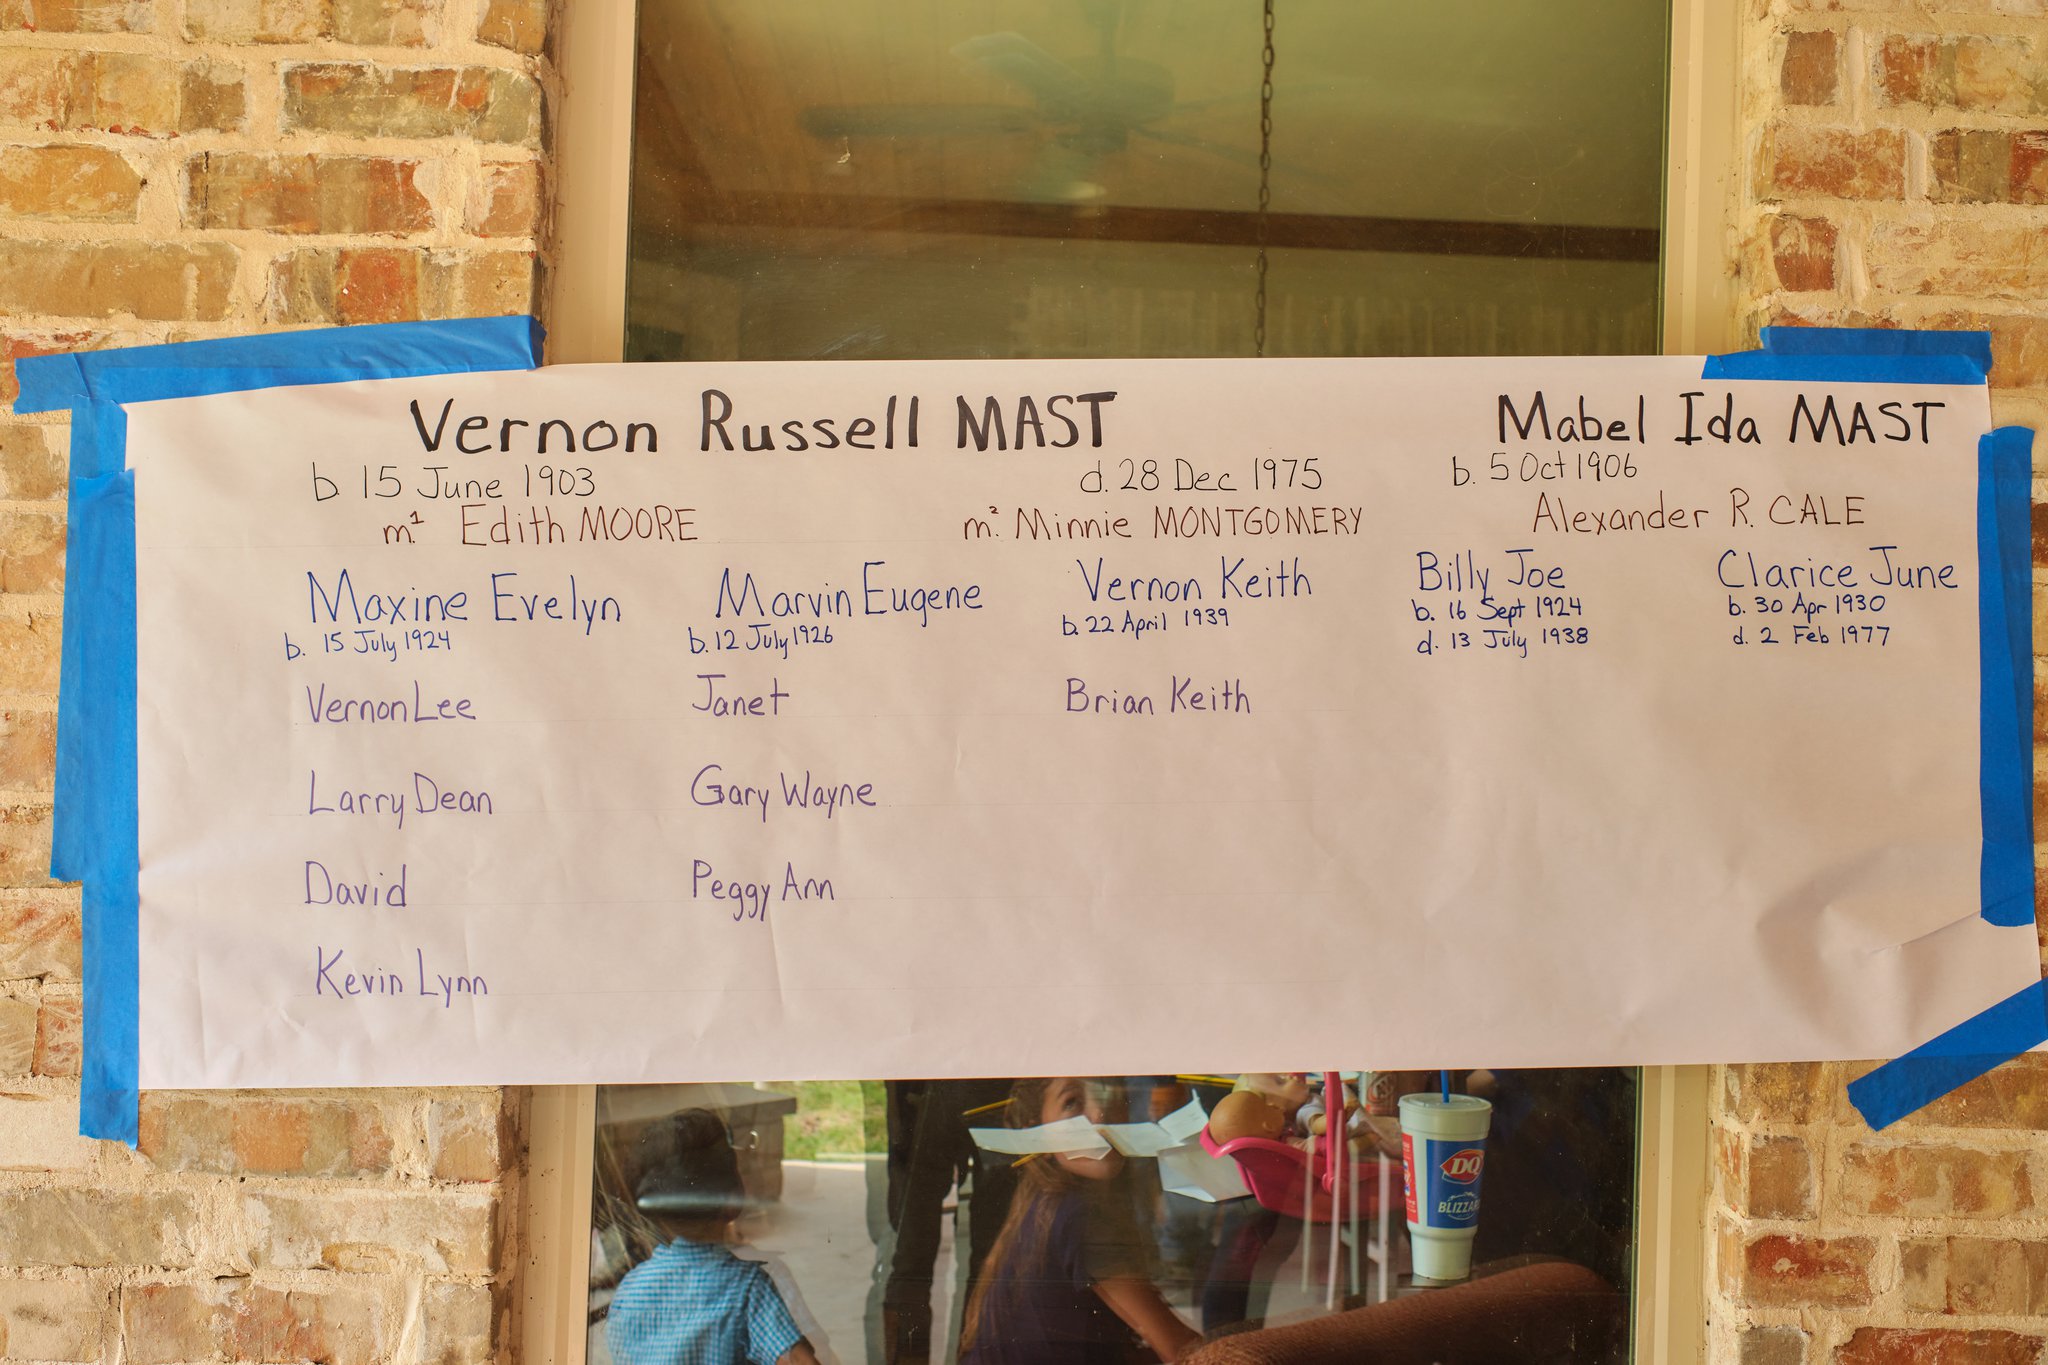 Vernon Russell MAST
Mabel Ida MAST
b. 15 June 1903
d. 28 Dec 1975
b. 5 Oct 1906
m.1 Edith MOORE
m.2 Minnie MONTGOMERY
Alexander R. CALE
Maxine Evelyn
Marvin Eugene
Vernon Keith
Billy Joe
Clarice June
b. 15 July 1924
b. 12 July 1926
b. 22 April 1939
b. 16 Sept 1924
b. 30 Apr 1930
d. 13 July 1938
d. 2 Feb 1977
Vernon Lee
Janet
Brian Keith
Larry Dean
Gary Wayne
David
Peggy Ann
Kevin Lynn
DQ
BLIZZARD